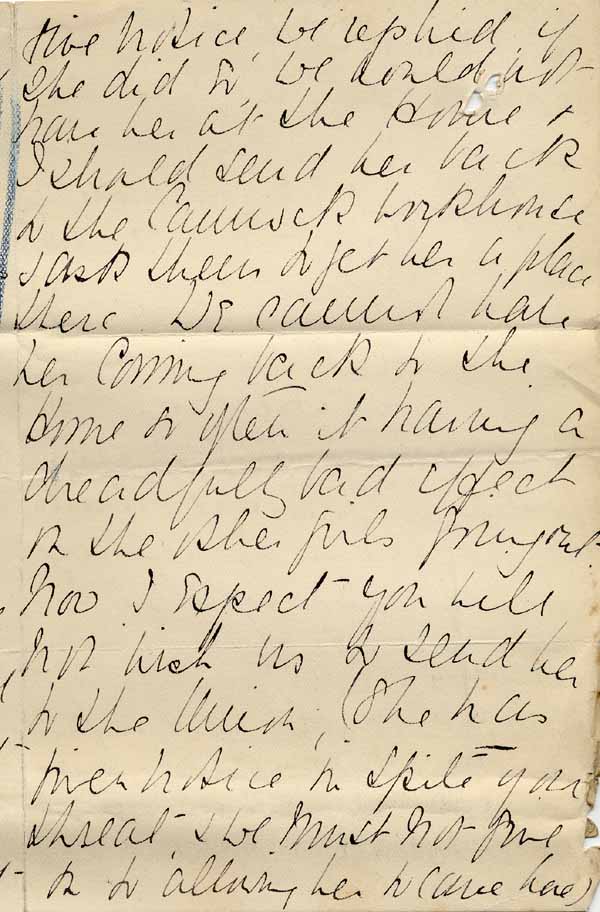 give notice, we replied if
she did so, we could not
have her at the Home &
I should send her back
to the Cannock Workhouse
& ask them to get her a place
there. We cannot have
her coming back to the
Home so often it having a
dreadfully bad effect
on the other girls going out.
Now I expect you will
not wish us to send her
to the Union, (She has
given notice in spite of our
threat & we must not give
in to allowing her to come here)